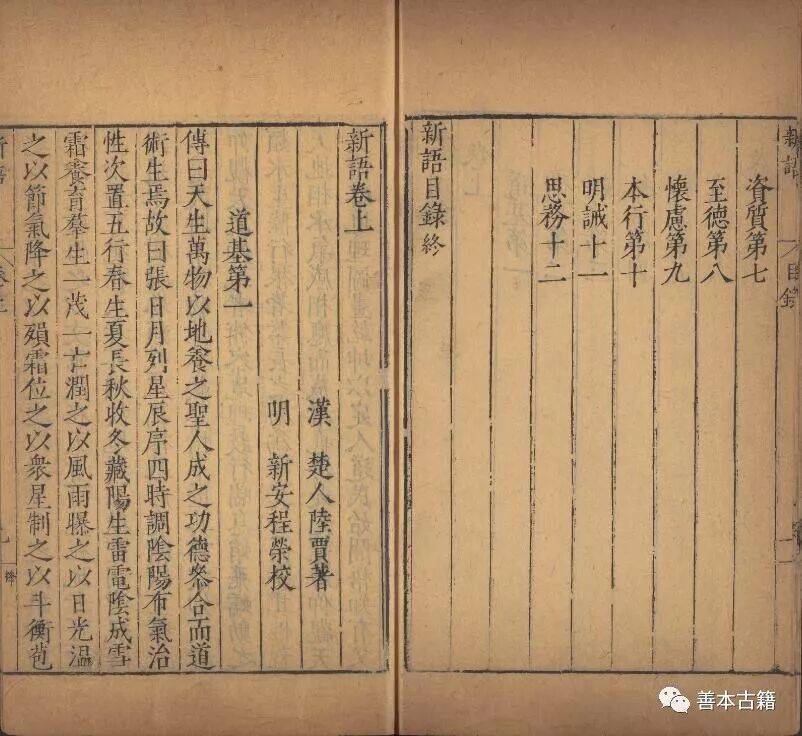 新語
目錄
資質第七
至德第八
懷慮第九
本行第十
明誡十一
思務十二
新語目錄終
新語卷上
漢 楚人陸賈著
明 新安程榮校
道基第一
傳曰天生萬物以地養之聖人成之功德叅合而道
術生焉故曰張日月列星辰序四時調陰陽布氣治
性次置五行春生夏長秋收冬藏陽生雷電陰成雪
霜養育羣生一茂一亡潤之以風雨曝之以日光溫
之以節氣降之以殞霜位之以衆星制之以斗衡苞
善本古籍